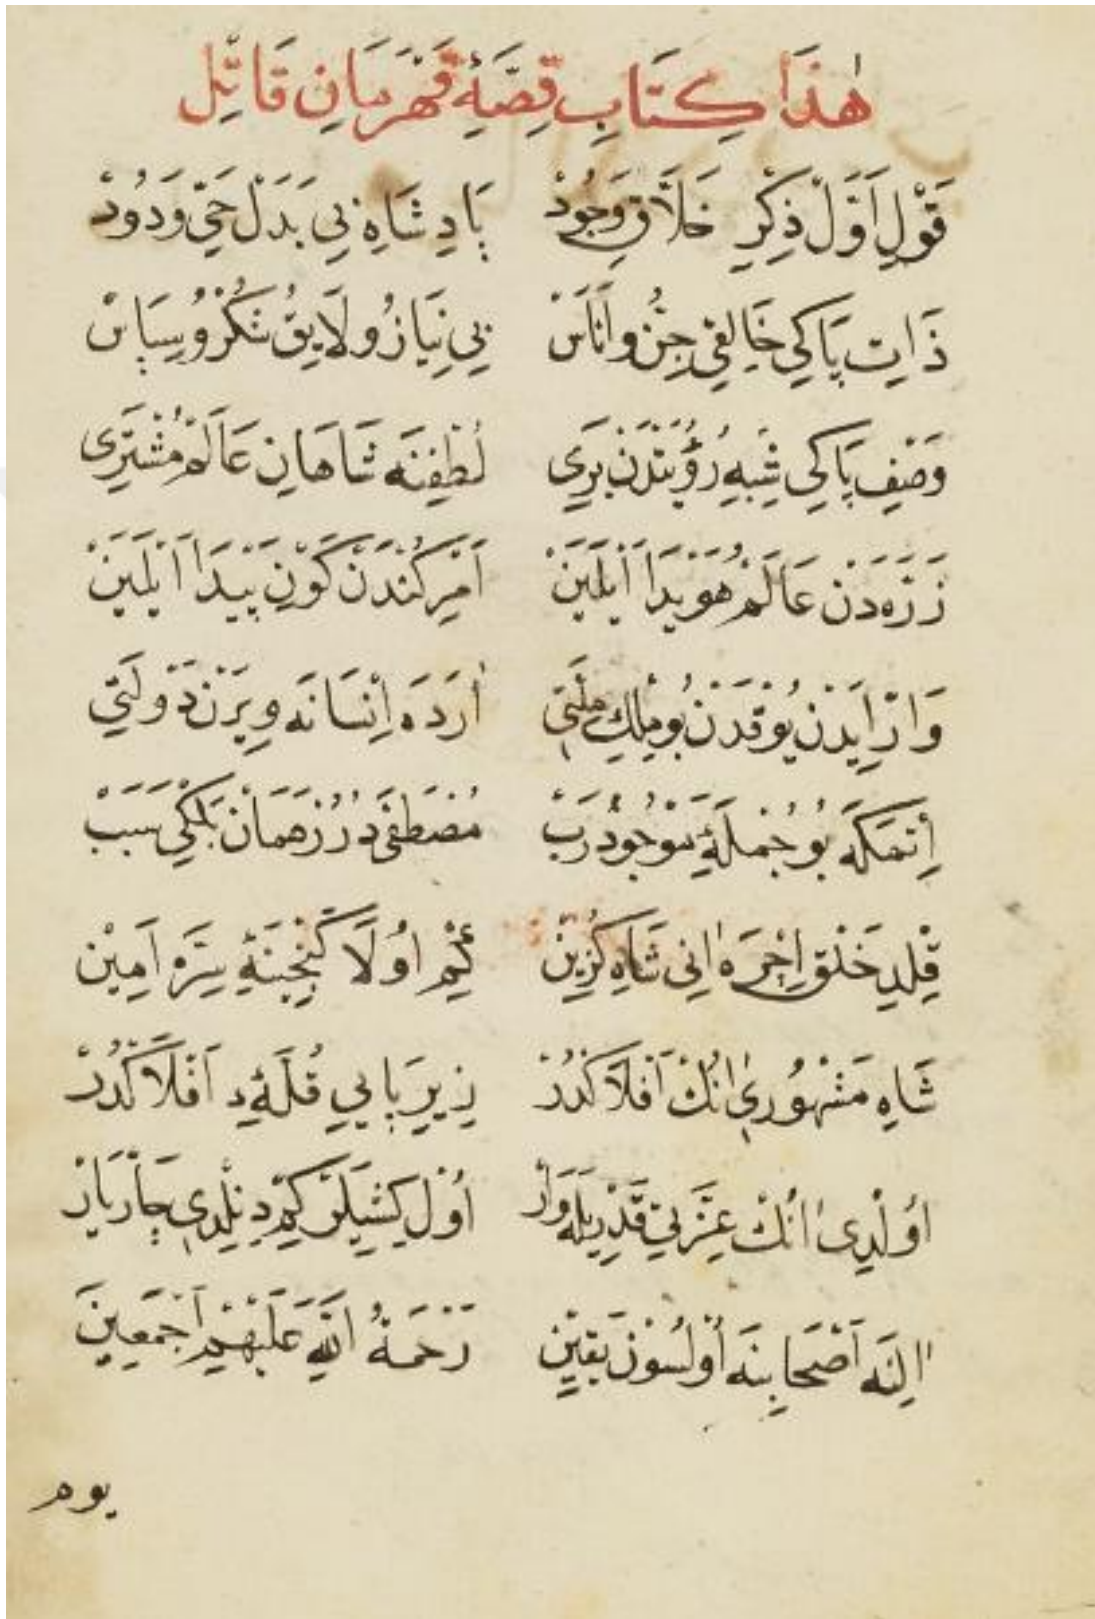 هٰذَا كِتَابِ قِصَّۀِ قَهْرَمَانِ قَاتِّلِ
قَوْلِ اَوَّلْ ذِكْرِ خَلَّاقِ وَجُودْ بَادِشَاهِ بِي بَدَلْ حَيِّ وَدُودْ
ذَاتِ پَاكِي خَالِقِي جِنُّ وَاَنَاسْ بِي نِيَازُ ولَايِقُ شُكْرُ وُسِپَاسْ
وَصْفِ پَاكِي شِبْهِ رُؤْيَتْدَنْ بَرِي لُطْفِنَه شَاهَانِ عَالَمْ مُشْتَرِي
زَرَّه دَنْ عَالَمْ هُوَيْدَا اَيْلَيَنْ اَمْرِ كُنْدَنْ كَوْنِ پَيْدَا اَيْلَيَنْ
وَارْ اِيدَنْ يُوقْدَنْ بُو مِلْكِ مِلَّتِي اَرَدَه اِنْسَانَه وِيرَنْ دَوْلَتِي
اِتْمَكَه بُو جُمْلَۀِ مَوْجُودْ رَبْ مُصْطَفَى دُرُرْ هَمَانْ بَلْكِي سَبَبْ
قِلْدِ خَلْقِ اٰخِرَه اٰنِي شَاهِ كُزِينْ كِيْم اوُلَا كَنْجِينَۀِ سِرَّه اَمِينْ
شَاهِ مَشْهُورِي اٰنُكْ اَفْلَاكَدُرْ زِيرِ پَايِي قُلَّۀِ دِ اَفْلَاكَدُرْ
اُولْدِي اٰنُكْ عِزَّتِي قَدْرِيلَه وَارْ اُوْل كِشِيلَرْ كِمْ دِنِلْدِي چَارْ يَارْ
اٰلِنَه اَصْحَابِنَه اُوْلْسُونْ يَقِينْ رَحْمَةُ اللّٰهِ عَلَيْهِمْ اَجْمَعِينَ
يوم